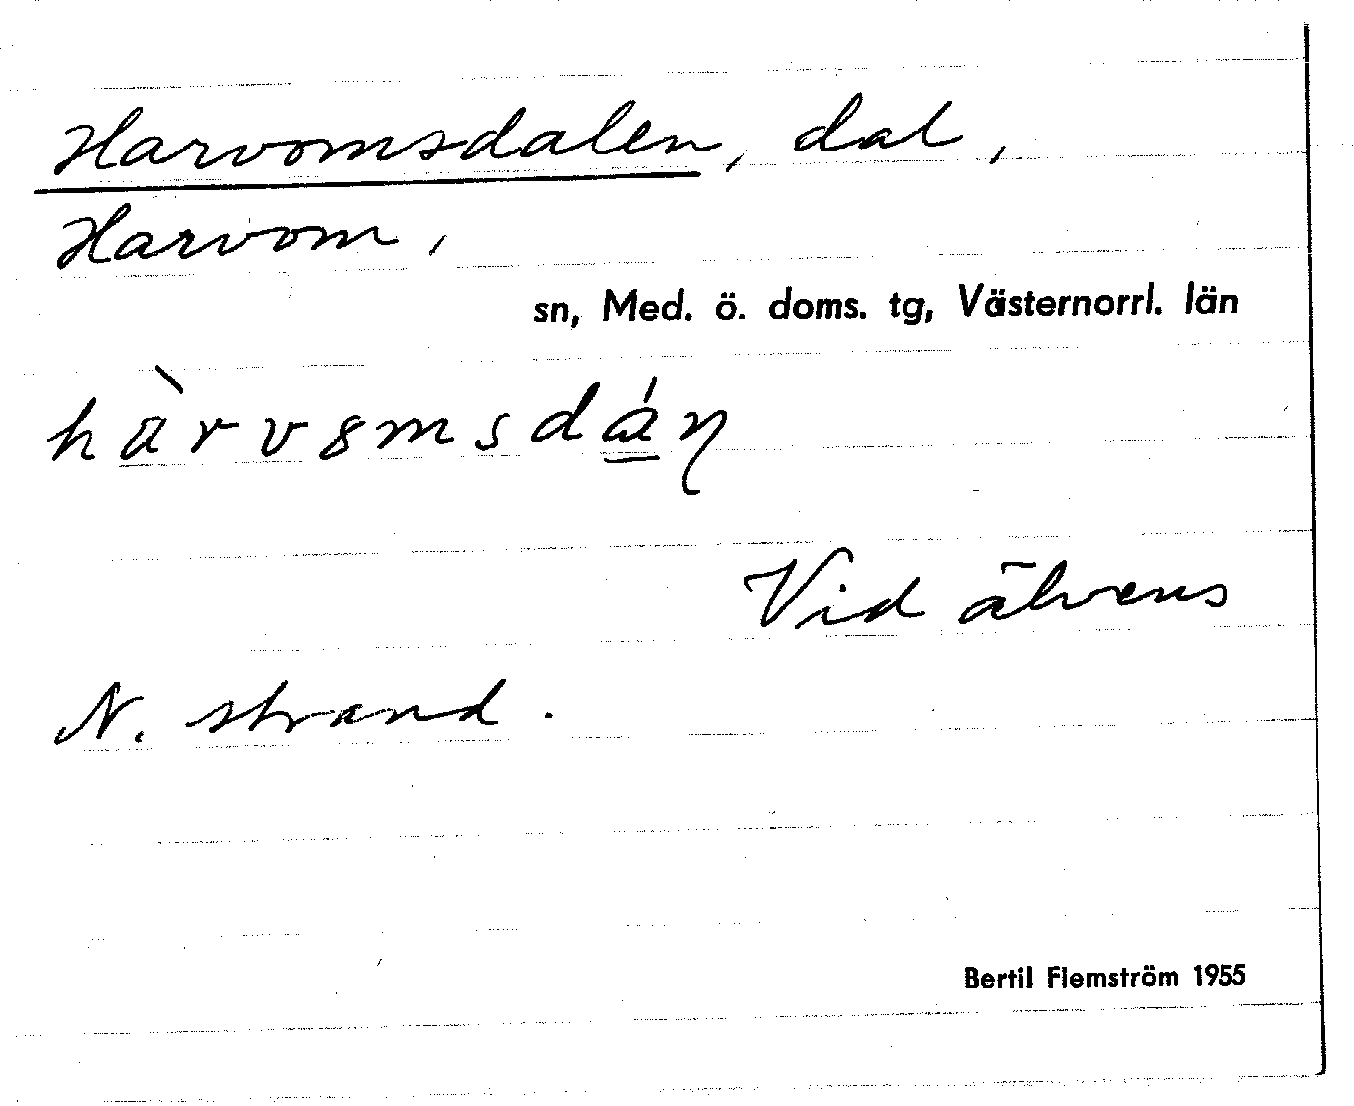 Harvomsdalen, dal,
Harvom,
sn, Med. ö. doms. tg, Västernorrl. län
hàrvȣmsdáη
Vid älvens
N. strand.
Bertil Flemström 1955